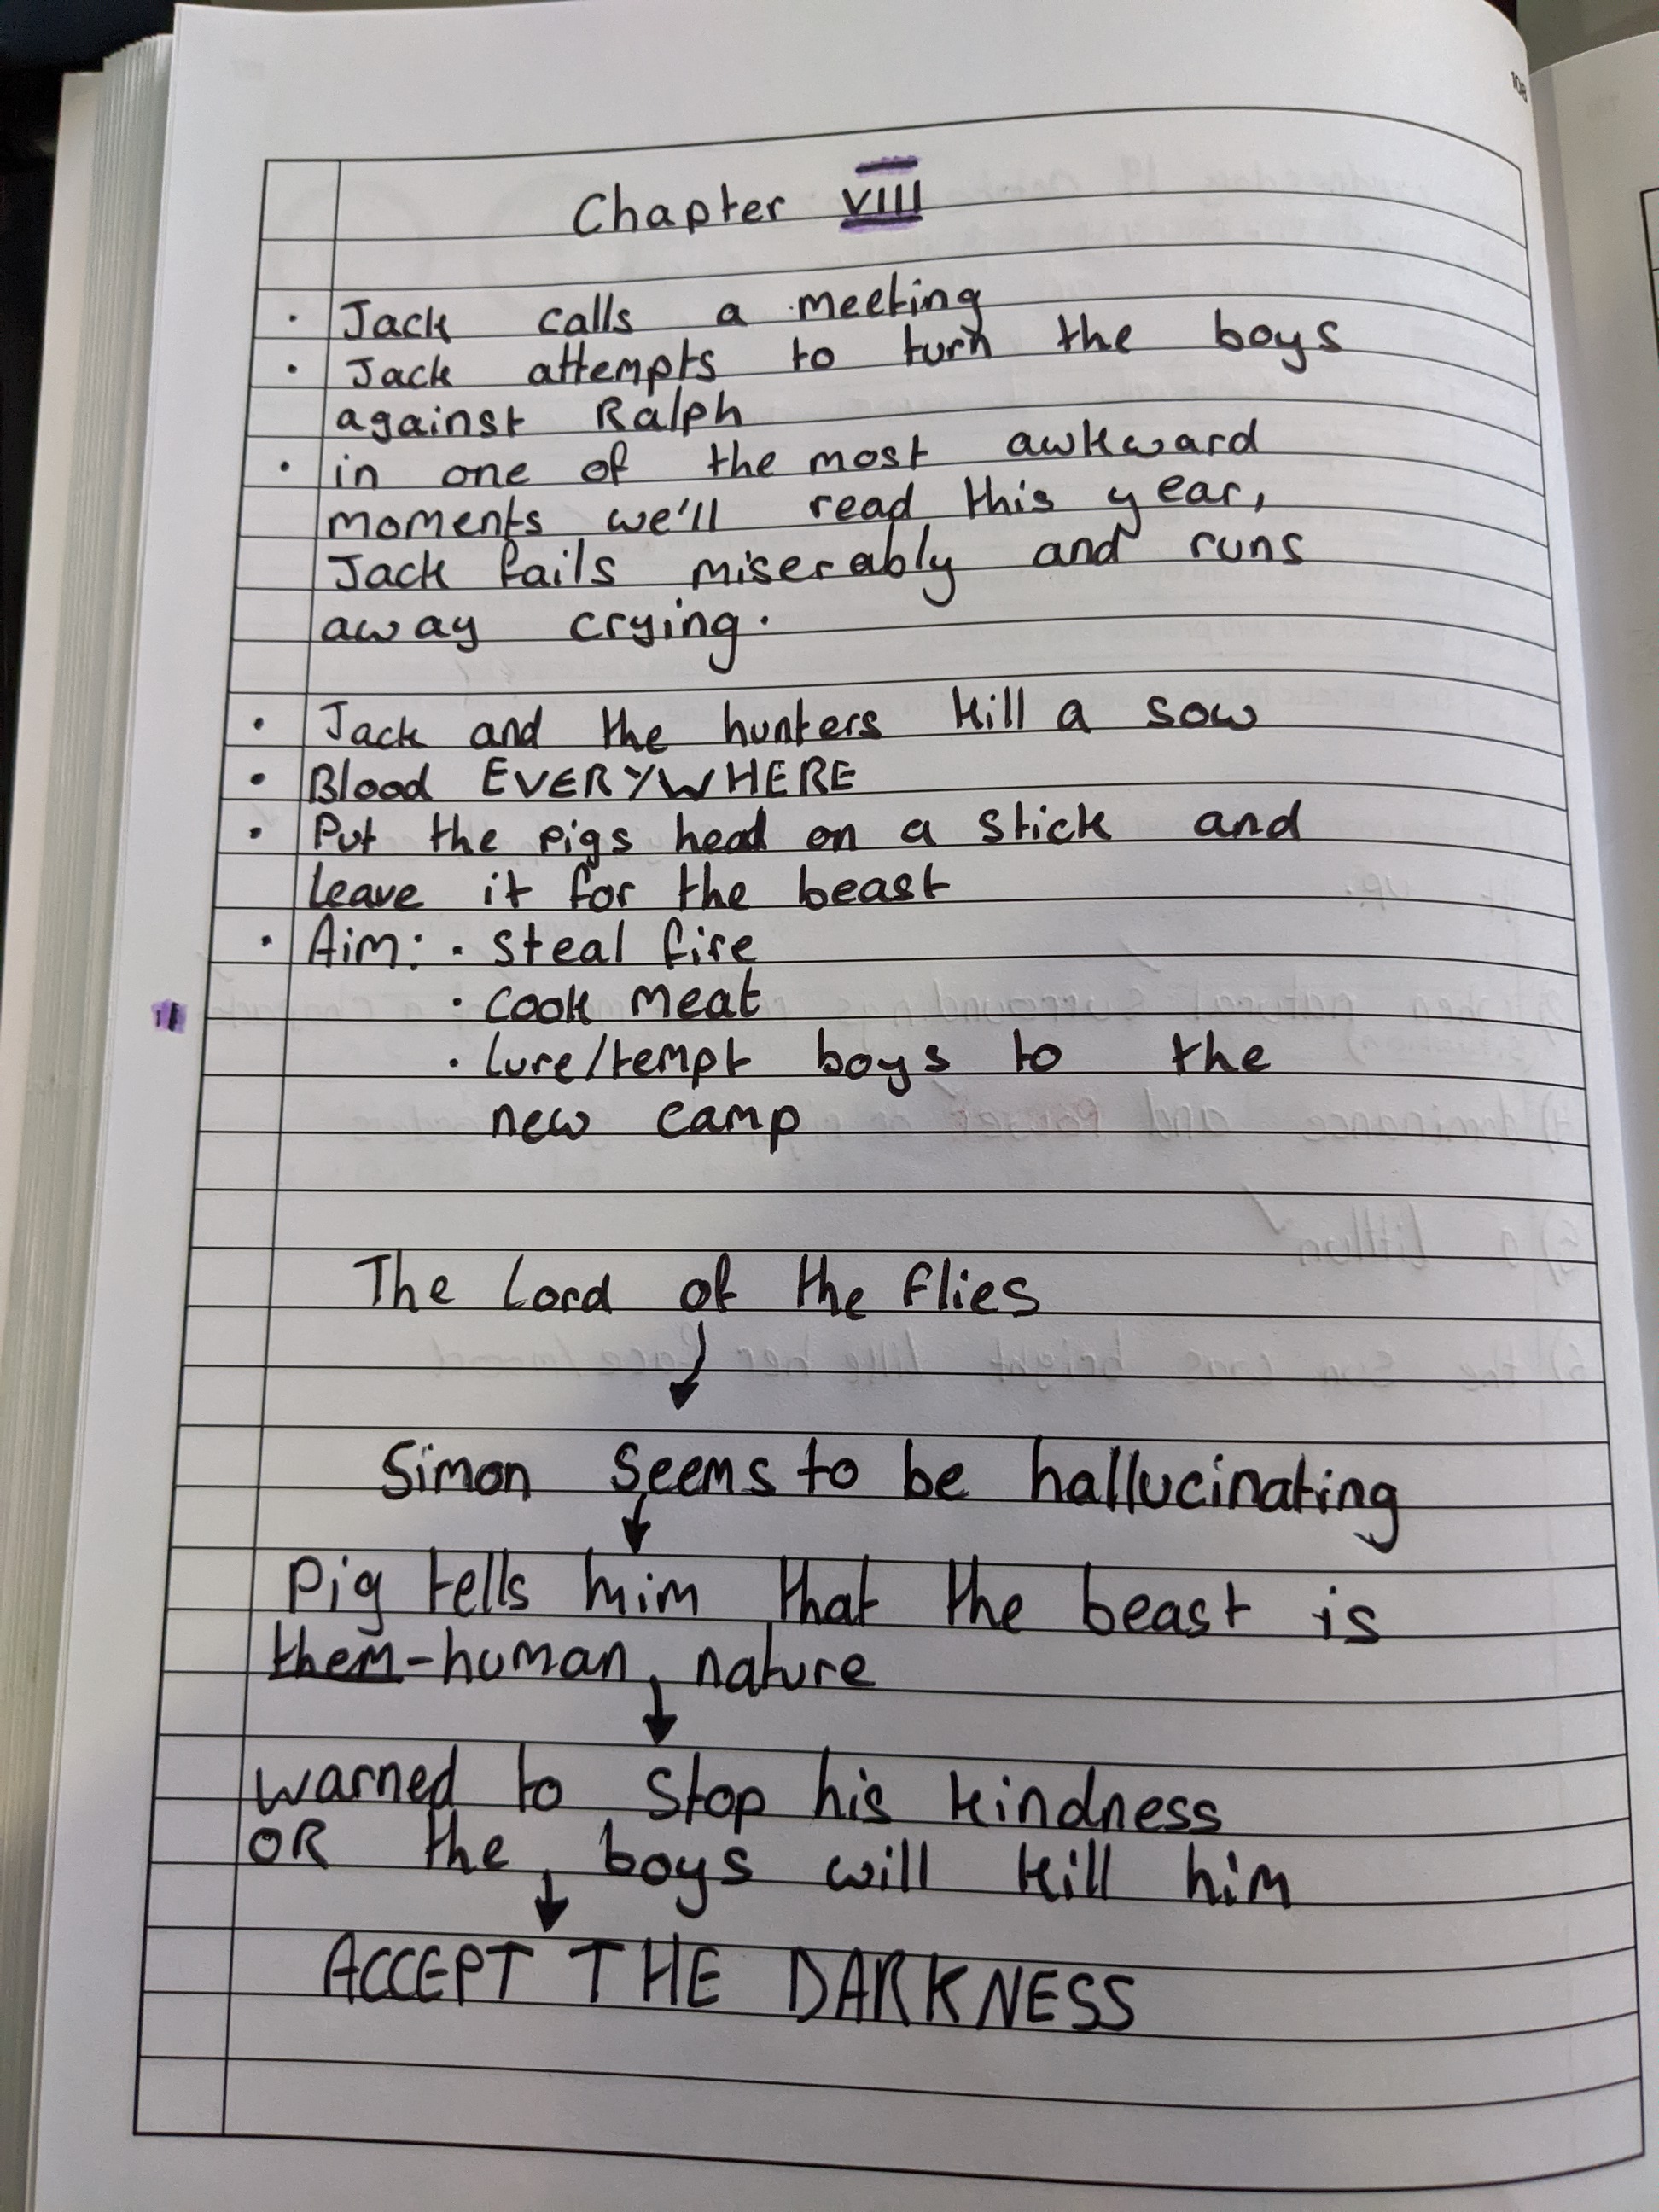 108
Chapter VIII
· Jack calls a meeting
· Jack attempts to turn the boys
against Ralph
· in one of the most awkward
moments we'll read this year,
Jack fails miserably and runs
away crying.
· Jack and the hunters kill a sow
· Blood EVERYWHERE
· Put the pigs head on a stick and
leave it for the beast
· Aim: · steal fire
· cook meat
· lure/tempt boys to the
new camp
The Lord of the flies
↓
Simon seems to be hallucinating
↓
Pig tells him that the beast is
them-human nature
↓
warned to stop his kindness
OR the boys will kill him
↓
ACCEPT THE DARKNESS